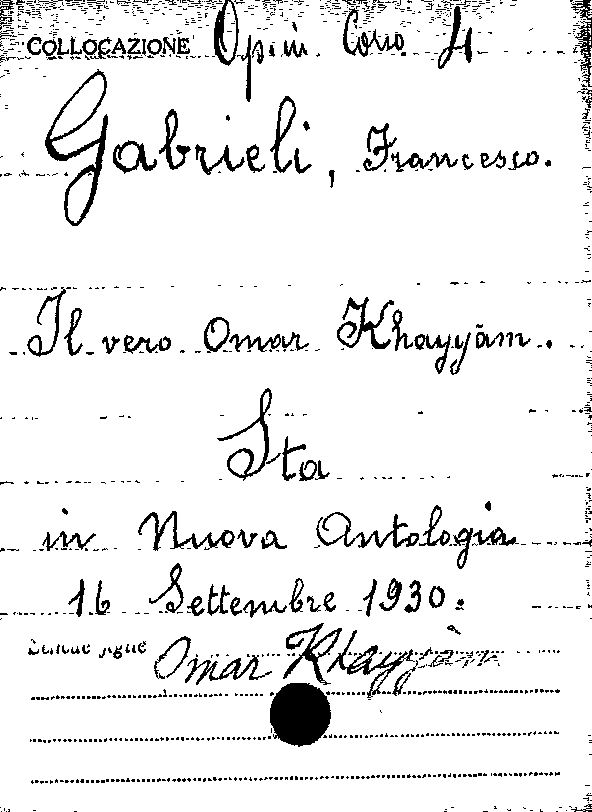 COLLOCAZIONE Op. in Corso 4
Gabrieli, Francesco.
Il vero Omar Khayyām.
Sta
in Nuova Antologia
16 Settembre 1930.
Omar Khayyàm